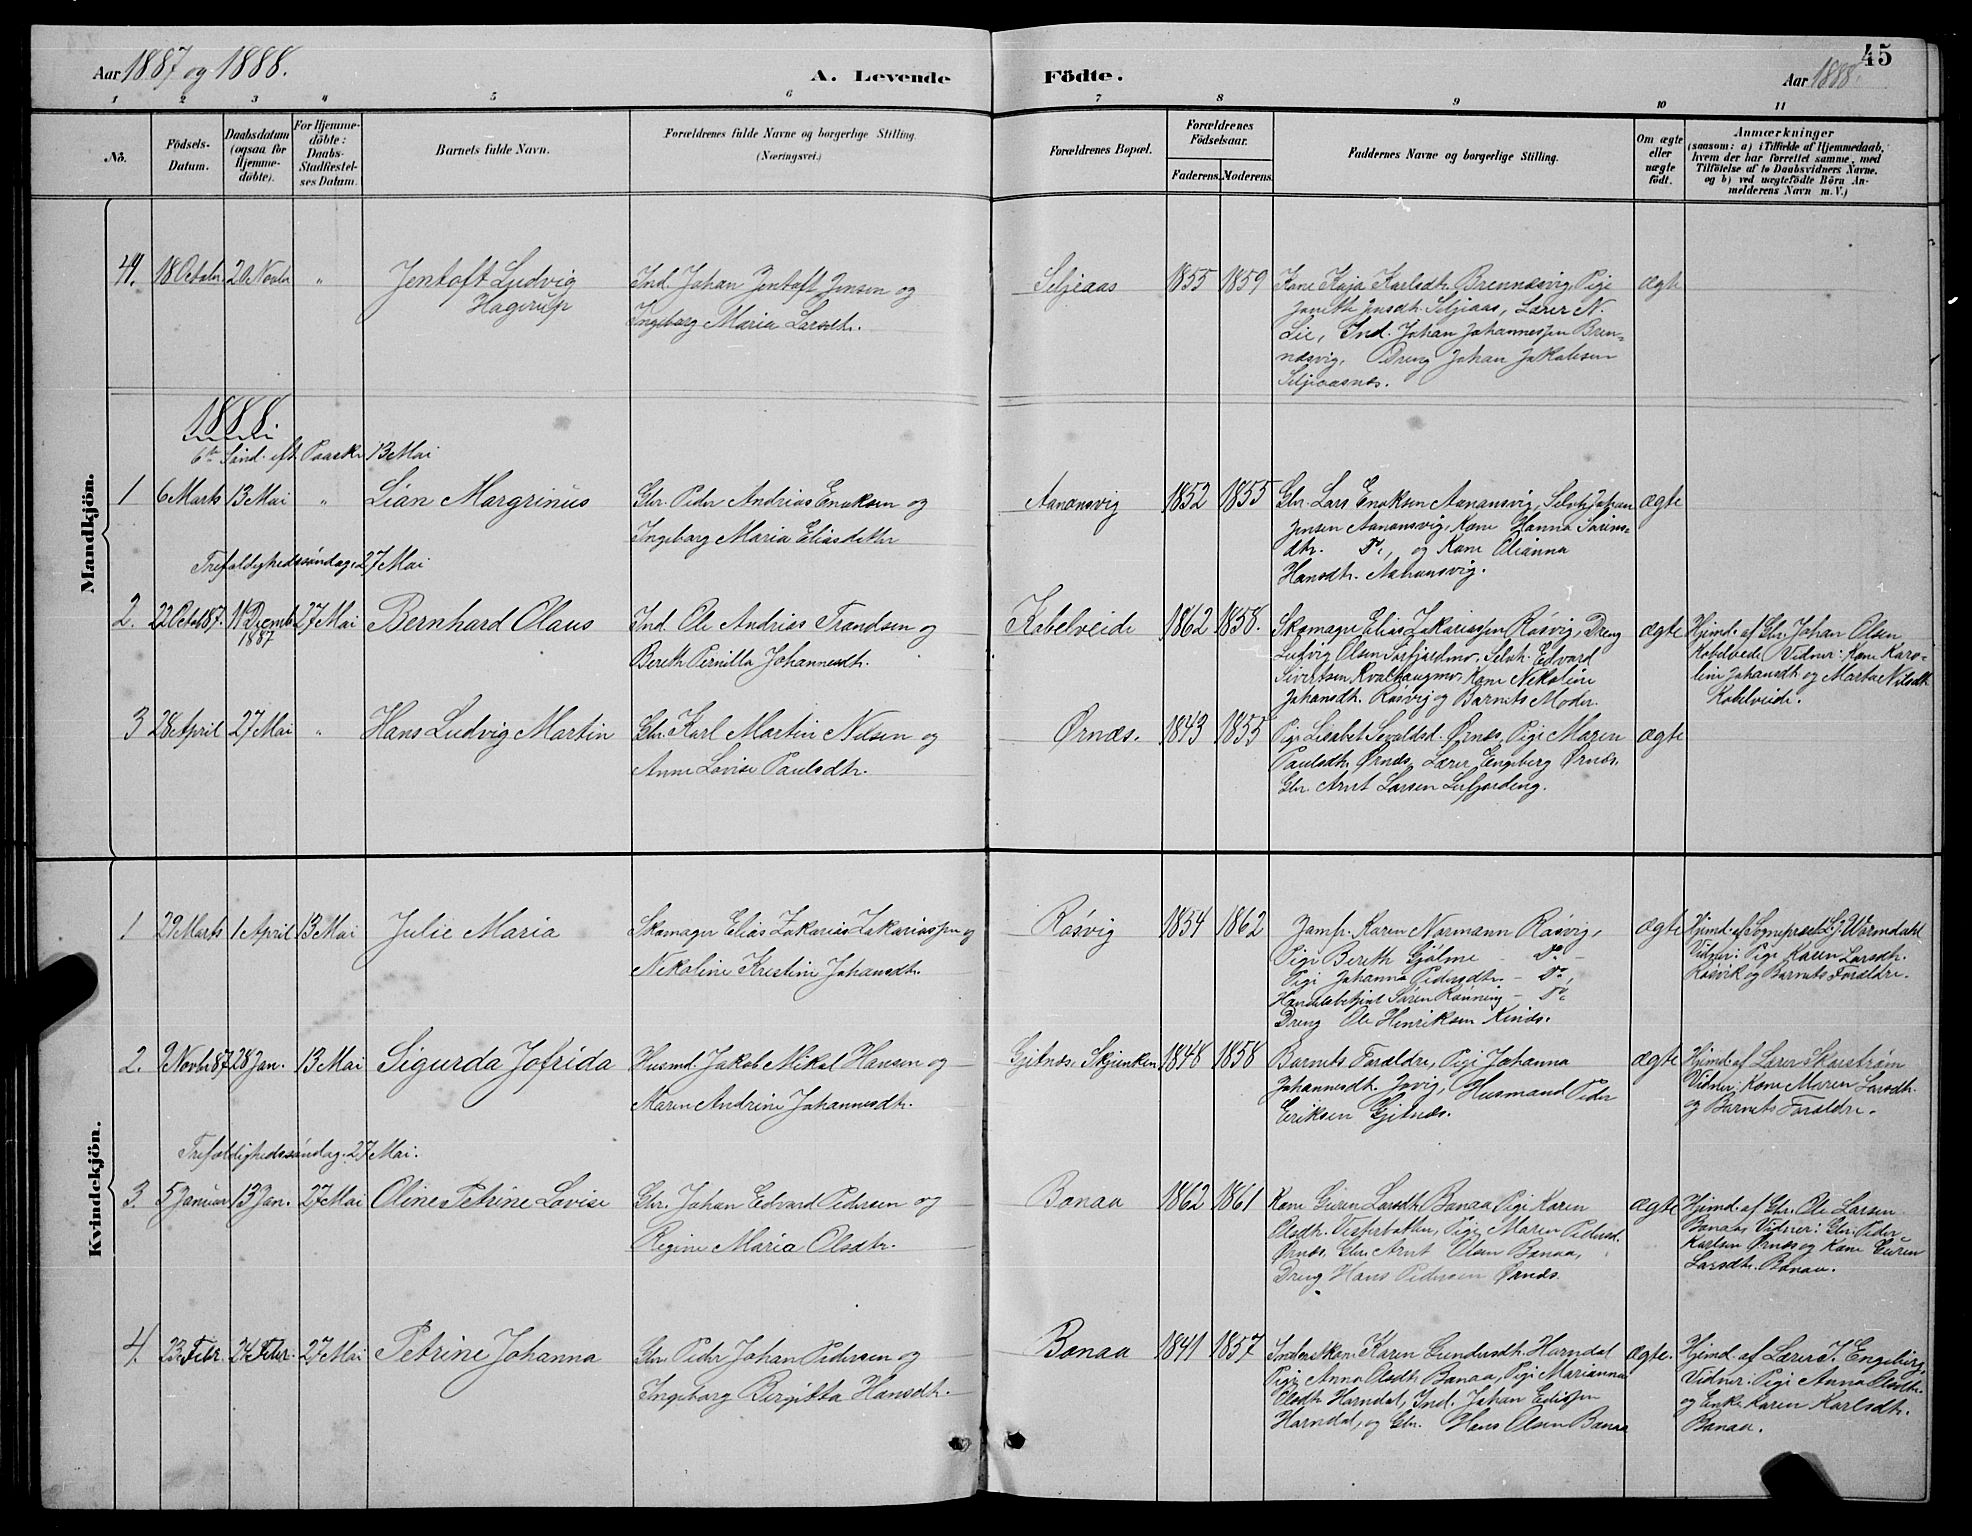 45
Aar 1887 og 1888.
A. Levende Födte.
Aar 1888.
1 2 3 4 5 6 7 8 9 10 11
No.
Födsels-Datum.
Daabsdatum (ogsaa for Hjemme-döbte).
For Hjemme-döbte: Daabs-Stadfæstel-ses Datum.
Barnets fulde Navn.
Forældrenes fulde Navne og borgerlige Stilling.
(Næringsvei.)
Forældrenes Bopæl.
Forældrenes Födselsaar.
Faderens. Moderens.
Faddernes Navne og borgerlige Stilling.
Om ægte eller uægte födt.
Anmærkninger
(saasom: a) i Tilfælde af Hjemmedaab,
hvem der har forrettet samme, med
Tilföielse af to Daabsvidners Navne,
og b) ved uægtefödte Börn An-
melderens Navn m.V.)
Mandkjön.
41. 18 Octobr. 20 Novbr " Jentoft Ludvig
Hagerup
Ind. Johan Jentoft Jensen og
Ingeborg Maria Larsdtr.
Seljeaas 1855 1859
Kone Kaja Karlsdtr. Brennæsvig, Pige
Jensdtr. Seljeaas, Lærer N.
Lie, Ind. Johan Johannessen Bren-
næsvig, Dreng Johan Jakobsen
Seljeaasnes.
ægte
1888
6te Sønd. eft. Paaske 13 Mai
1 6 Marts 13 Mai " Lian Margrinus
Gbr. Peder Andrias Enoksen og
Ingeborg Maria Eliasdatter
Aanansvig 1852 1855
Gbr. Lars Enoksen Aanansvig, Selvh. Johan
Jensen Aanansvig, Kone Hanna Sørins-
dtr. Do, og Kone Olianna
Hansdtr. Aanansvig.
ægte
Trefoldighedssøndag, 27 Mai
2. 22 Octob 87. 11 Decemb. 1887 27 Mai Bernhard Olaus
Ind. Ole Andrias Trondsen og
Bereth Pernilla Johannesdtr.
Kobelveide 1862 1858.
Skomager Elias Zakariassen Røsvig, Dreng
Ludvig Olsen Sørfjordmo, Selvh. Edvard
Sivertsen Kvalhaugmo, Kone Nekoline
Johansdtr. Røsvig og Barnets Moder.
ægte
Hjemd. af Gbr. Johan Olsen
Kobelveide, Vidner: Kone Karo-
line Johansdtr og Marta Nilsdtr
Kobelveide.
3 28 April 27 Mai " Hans Ludvig Martin
Gbr. Karl Martin Nilsen og
Anne Lovise Paulsdtr.
Ørnæs. 1843 1855
Pige Lisabet Sevaldsd. Ørnæs, Pige Maren
Paulsdtr. Ørnæs, Lærer Engeberg Ørnæs.
Gbr. Arnt Larsen Leifjording.
ægte
Kvindekjön.
1 29 Marts 1 April 13 Mai Julie Maria
Skomager Elias Zakarias Zakariassen og
Nekoline Kristine Johansdtr.
Røsvig 1854 1862
Jomfr. Karen Normann Røsvig,
Pige Bereth Gjølme - Do -
Pige Johanna Pedersdtr. - Do,
Handelsbetjent Søren Rønning - Do
Dreng Ole Henriksen Kinæs.
ægte
Hjemd. af Sogneprest L. J. Wormdahl
Vidner: Pige Karen Larsdtr.
Røsvik og Barnets Forældre.
2. 9 Novbr 87 28 Jan. 13 Mai Sigurda Jofrida
Husmd. Jakob Mikal Hansen og
Maren Andrine Johannesdtr.
Gjetnæs, Skjunken 1848 1858
Barnets Forældre, Pige Johanna
Johannesdtr. Jovig, Husmand Peder
Eeriksen Gjetnæs.
ægte
Hjemd. af Lærer Skarstrøm
Vidner: Kone Maren Larsdtr.
og Barnets Forældre.
Trefoldighedssøndag 27 Mai.
3. 5 Januar 13 Jan. 27 Mai Oline Petrine Lovise
Gbr. Johan Edvard Pedersen og
Regine Maria Olsdtr.
Bonaa 1862 1861
Kone Guren Larsdtr. Bonaa, Pige Karen
Olsdtr. Vesterbotten, Pige Maren Pedersd.
Ørnæs, Gbr. Arnt Olsen Bonaa,
Dreng Hans Pedersen Ørnæs.
ægte
Hjemd. af Gbr. Ole Larsen
Bonaa, Vidner: Gbr. Peder
Karlsen Ørnæs og Kone Guren
Larsdtr. Bonaa.
4. 23 Febr. 24 Febr. 27 Mai Petrine Johanna
Gbr. Peder Johan Pedersen og
Ingeborg Birgitta Hansdtr.
Bonaa 1841 1857
Inderstkone Karen Gundersdtr. Horndal
Pige Anna Olsdtr. Bonaa, Pige Marianna
Olsdtr. Horndal, Ind. Johan Edissen
Horndal, og Gbr. Hans Olsen Bonaa
ægte.
Hjemd. af Lærer J. Engeberg,
Vidner: Pige Anna Olsdtr.
og Enke Karen Karlsdtr.
Bonaa.